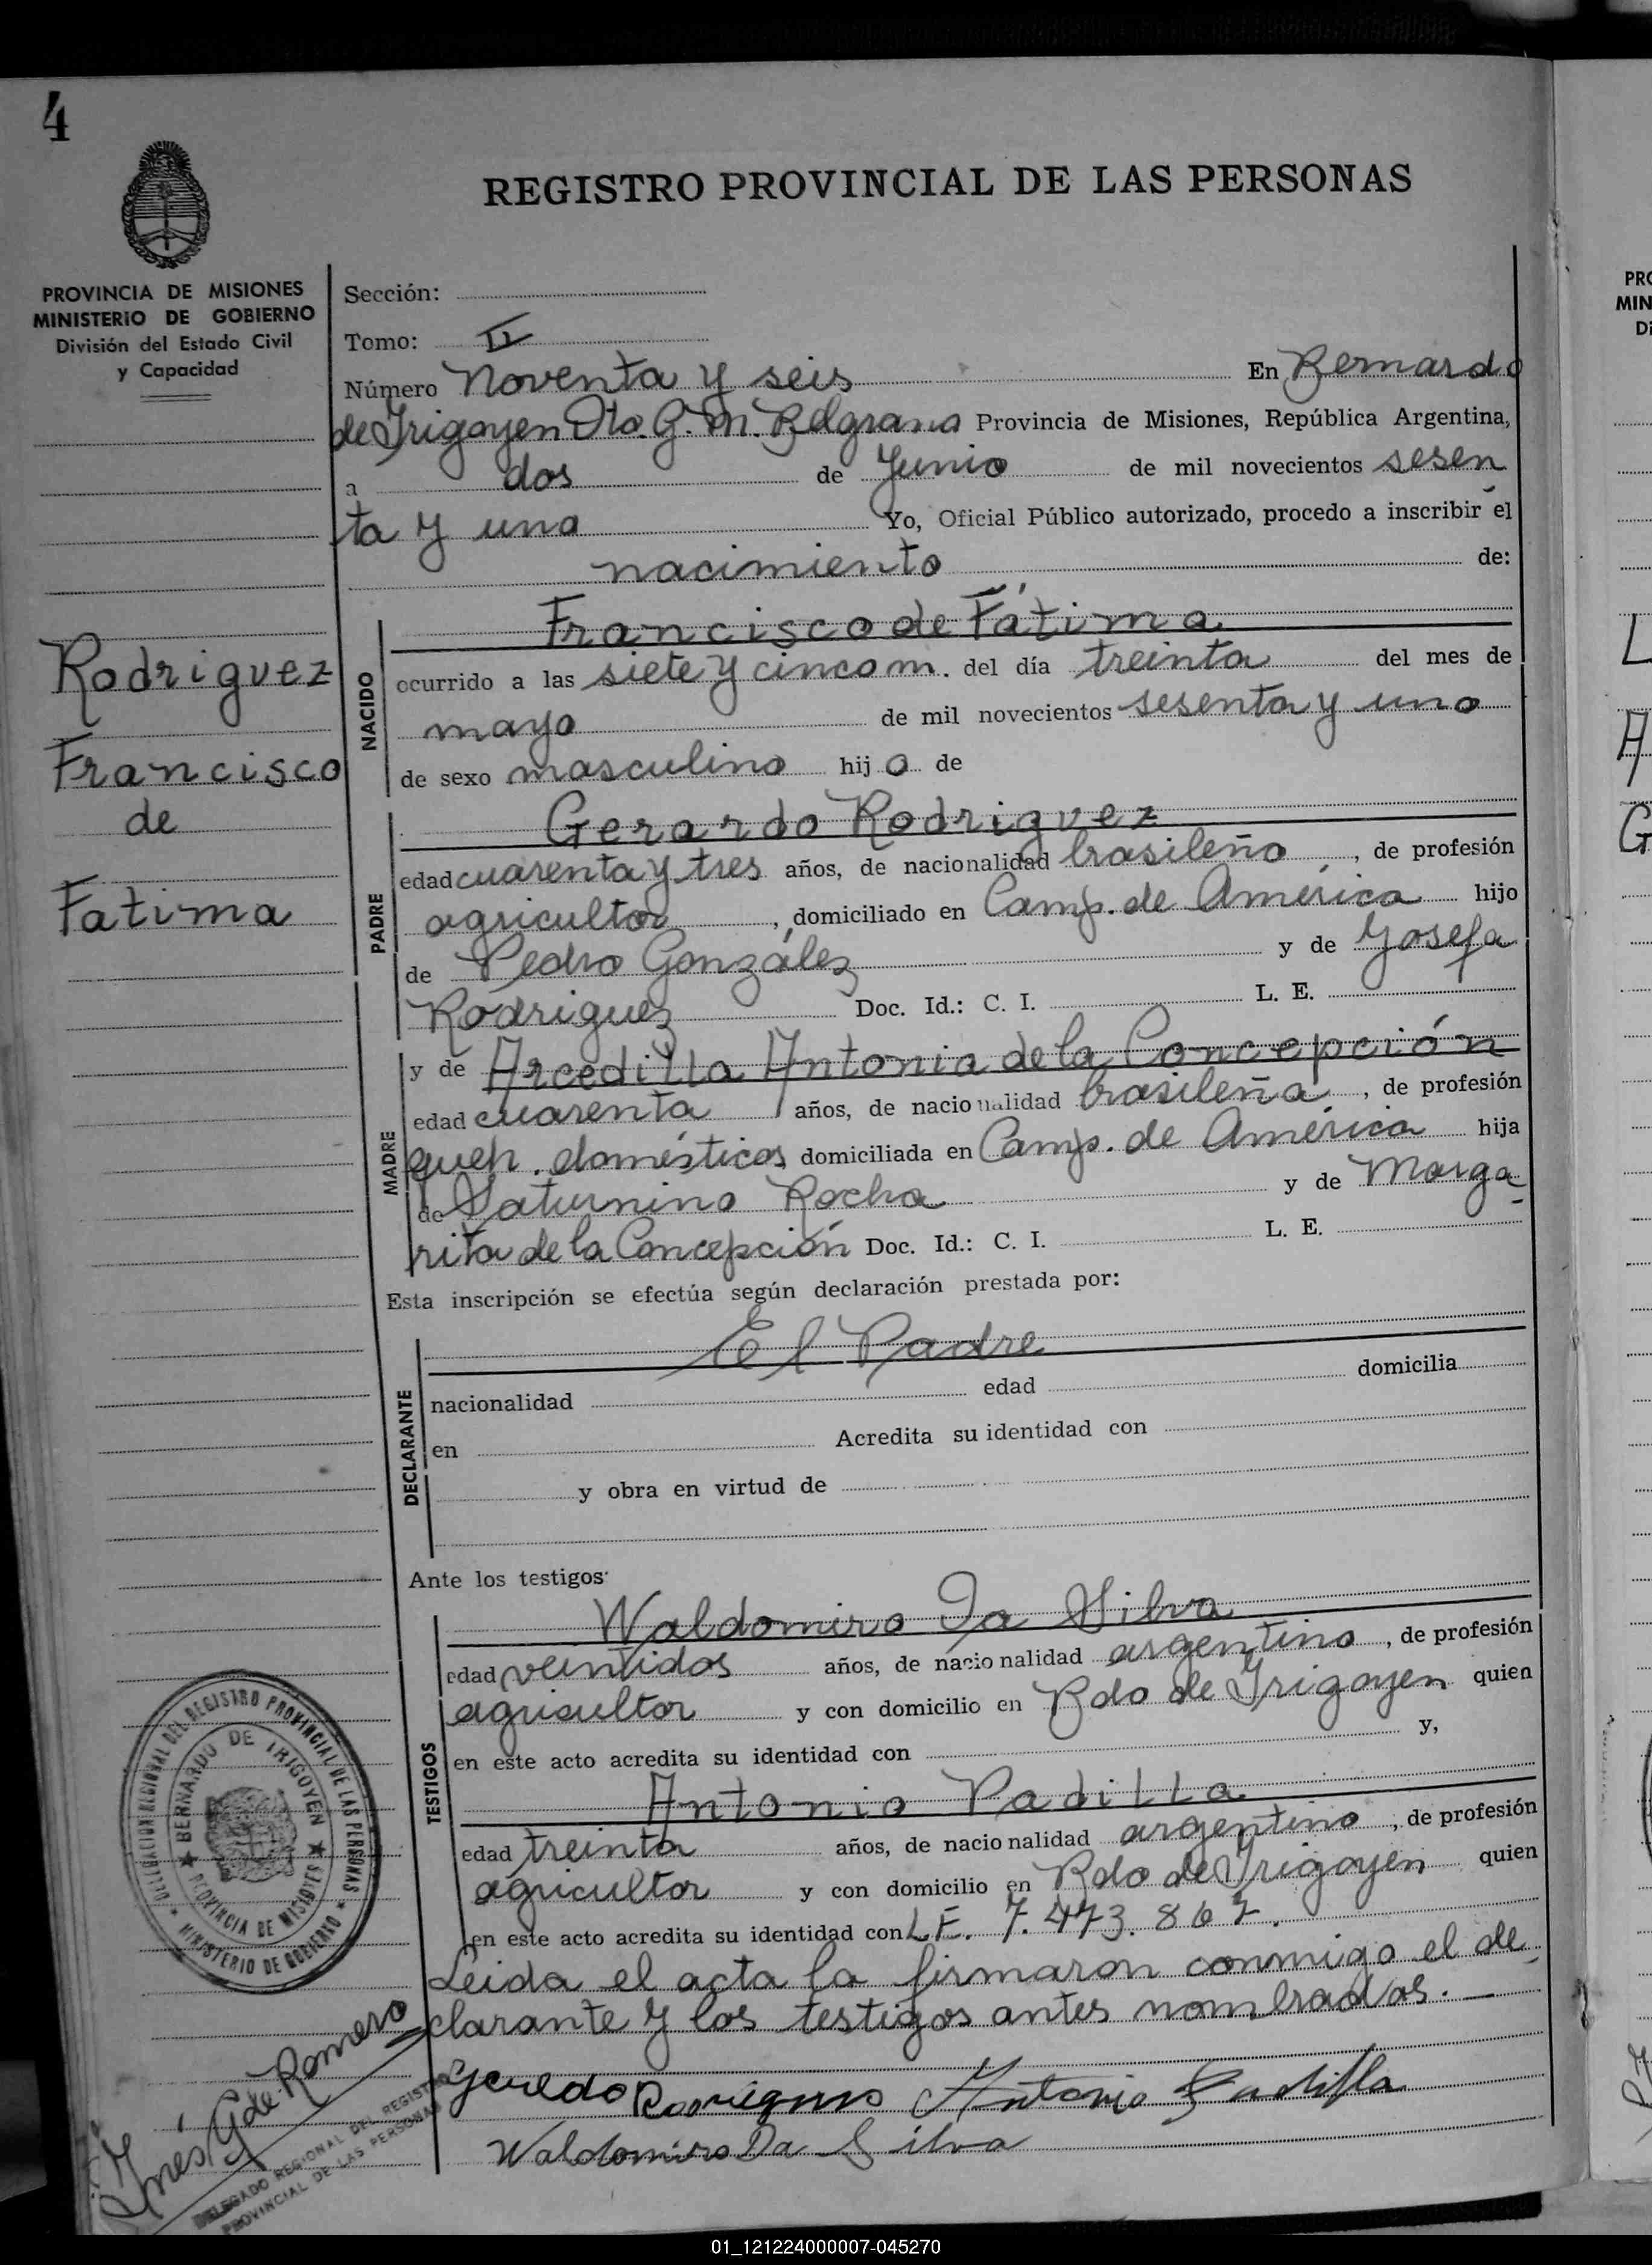 4
REGISTRO PROVINCIAL DE LAS PERSONAS
PROVINCIA DE MISIONES
MINISTERIO DE GOBIERNO
División del Estado Civil
y Capacidad
Sección:
Tomo: II
Número Noventa y seis En Bernardo
de Irigoyen Dto. G. M. Belgrano Provincia de Misiones, República Argentina,
a dos de Junio de mil novecientos sesen
ta y uno Yo, Oficial Público autorizado, procedo a inscribir el
nacimiento de:
Rodriguez
Francisco
de
Fatima
NACIDO
Francisco de Fátima
ocurrido a las siete y cinco m. del día treinta del mes de
mayo de mil novecientos sesenta y uno
de sexo masculino hijo de
PADRE
Gerardo Rodriguez
edad cuarenta y tres años, de nacionalidad brasileño, de profesión
agricultor, domiciliado en Camp. de América hijo
de Pedro González y de Josefa
Rodriguez Doc. Id.: C. I. L. E.
MADRE
y de Arcedilla Antonia de la Concepción
edad cuarenta años, de nacionalidad brasileña, de profesión
queh. domésticos domiciliada en Camp. de América hija
de Saturnino Rocha y de Marga
rita de la Concepción Doc. Id.: C. I. L. E.
Esta inscripción se efectúa según declaración prestada por:
DECLARANTE
El Padre
nacionalidad edad domicilia
en Acredita su identidad con
y obra en virtud de
Ante los testigos:
TESTIGOS
Waldomiro Da Silva
edad veintidos años, de nacionalidad argentino, de profesión
agricultor y con domicilio en Bdo de Irigoyen quien
en este acto acredita su identidad con y,
Antonio Padilla
edad treinta años, de nacionalidad argentino, de profesión
agricultor y con domicilio en Bdo de Irigoyen quien
en este acto acredita su identidad con L.E. 7.473.867.
Leida el acta la firmaron conmigo el de
clarante y los testigos antes nombrados.
Antonio Padilla
Waldomiro Da Silva
DELEGACION REGIONAL DEL REGISTRO PROVINCIAL DE LAS PERSONAS
MINISTERIO DE GOBIERNO
BERNARDO DE IRIGOYEN
PROVINCIA DE MISIONES
Inés G. de Romero
DELEGADO REGIONAL DEL REGISTRO
PROVINCIAL DE LAS PERSONAS
PRO
MIN
Di
L
A
G
01_121224000007-045270